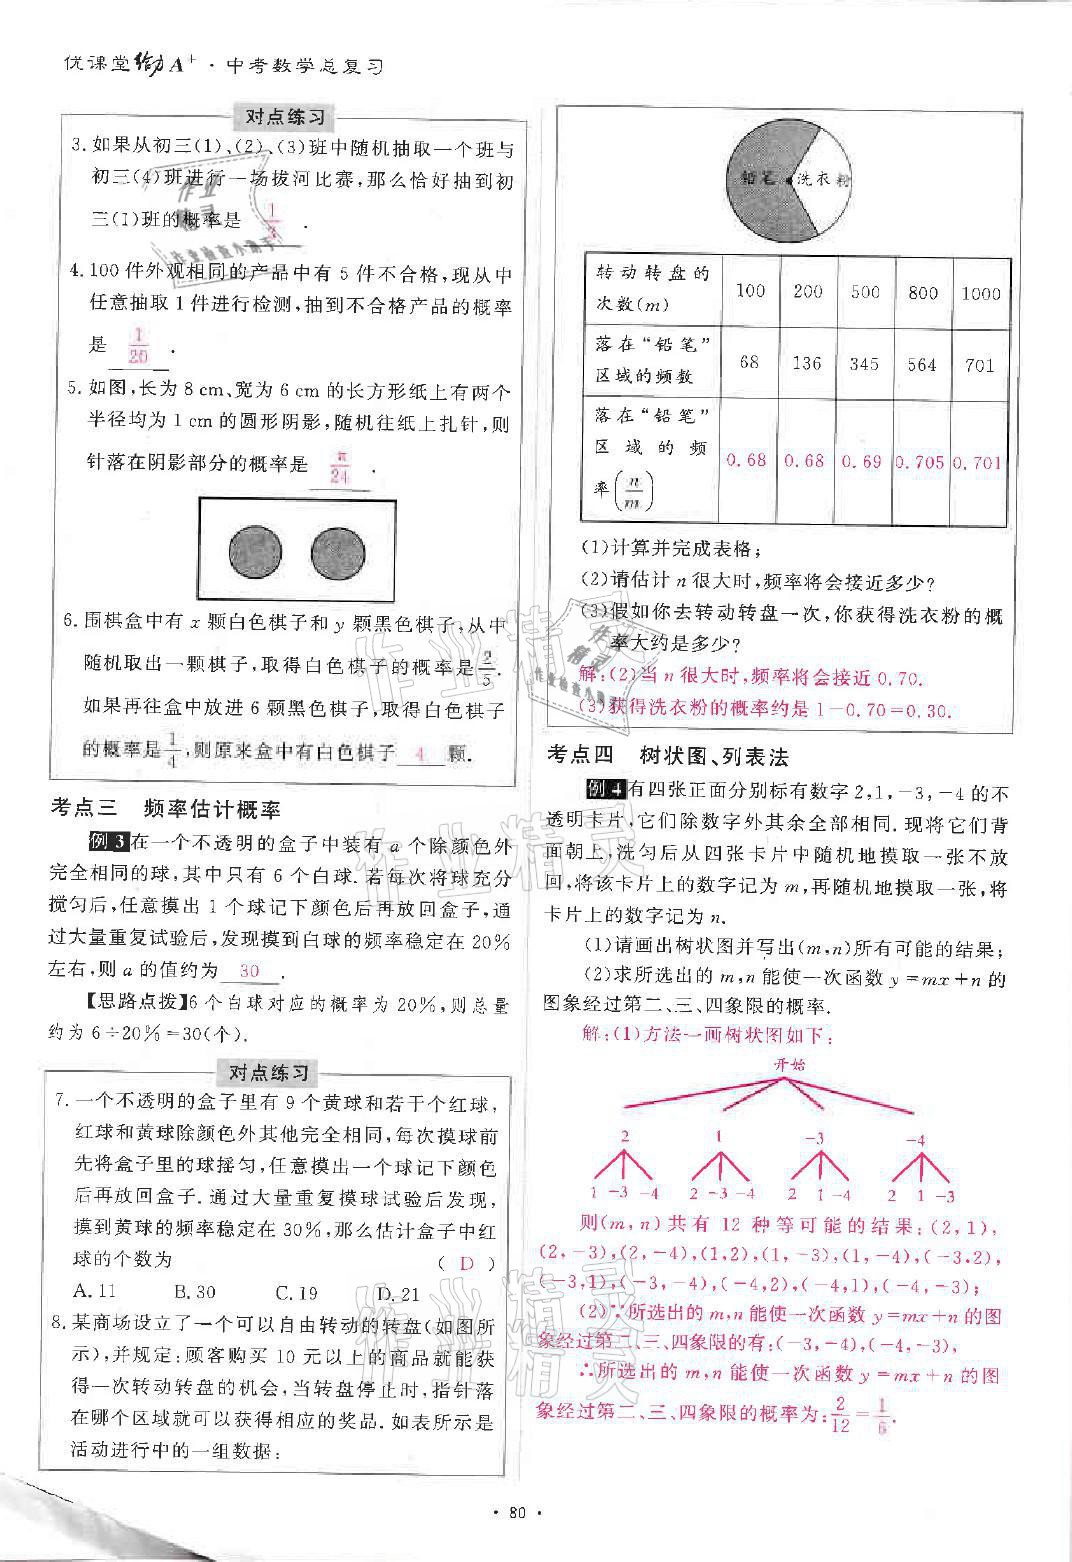 优课堂 给力A⁺·中考数学总复习
对点练习
3. 如果从初三(1)、(2)、(3)班中随机抽取一个班与
初三(4)班进行一场拔河比赛,那么恰好抽到初
三(1)班的概率是 1/3 .
4. 100 件外观相同的产品中有 5 件不合格,现从中
任意抽取 1 件进行检测,抽到不合格产品的概率
是 1/20 .
5. 如图,长为 8 cm、宽为 6 cm 的长方形纸上有两个
半径均为 1 cm 的圆形阴影,随机往纸上扎针,则
针落在阴影部分的概率是 π/24 .
6. 围棋盒中有 x 颗白色棋子和 y 颗黑色棋子,从中
随机取出一颗棋子,取得白色棋子的概率是 2/5.
如果再往盒中放进 6 颗黑色棋子,取得白色棋子
的概率是 1/4,则原来盒中有白色棋子 4 颗.
考点三 频率估计概率
例 3 在一个不透明的盒子中装有 a 个除颜色外
完全相同的球,其中只有 6 个白球. 若每次将球充分
搅匀后,任意摸出 1 个球记下颜色后再放回盒子,通
过大量重复试验后,发现摸到白球的频率稳定在 20%
左右,则 a 的值约为 30 .
【思路点拨】6 个白球对应的概率为 20%,则总量
约为 6÷20%=30(个).
对点练习
7. 一个不透明的盒子里有 9 个黄球和若干个红球,
红球和黄球除颜色外其他完全相同,每次摸球前
先将盒子里的球摇匀,任意摸出一个球记下颜色
后再放回盒子. 通过大量重复摸球试验后发现,
摸到黄球的频率稳定在 30%,那么估计盒子中红
球的个数为 ( D )
A. 11 B. 30 C. 19 D. 21
8. 某商场设立了一个可以自由转动的转盘(如图所
示),并规定:顾客购买 10 元以上的商品就能获
得一次转动转盘的机会,当转盘停止时,指针落
在哪个区域就可以获得相应的奖品. 如表所示是
活动进行中的一组数据:
铅笔 洗衣粉
转动转盘的次数(m) 100 200 500 800 1000
落在“铅笔”区域的频数 68 136 345 564 701
落在“铅笔”区域的频率(n/m) 0.68 0.68 0.69 0.705 0.701
(1)计算并完成表格;
(2)请估计 n 很大时,频率将会接近多少?
(3)假如你去转动转盘一次,你获得洗衣粉的概
率大约是多少?
解:(2)当 n 很大时,频率将会接近 0.70.
(3)获得洗衣粉的概率约是 1-0.70=0.30.
考点四 树状图、列表法
例 4 有四张正面分别标有数字 2,1,-3,-4 的不
透明卡片,它们除数字外其余全部相同. 现将它们背
面朝上,洗匀后从四张卡片中随机地摸取一张不放
回,将该卡片上的数字记为 m,再随机地摸取一张,将
卡片上的数字记为 n.
(1)请画出树状图并写出(m,n)所有可能的结果;
(2)求所选出的 m,n 能使一次函数 y=mx+n 的
图象经过第二、三、四象限的概率.
解:(1)方法一画树状图如下:
开始
2 1 -3 -4
1 -3 -4 2 -3 -4 2 1 -4 2 1 -3
则(m,n)共有 12 种等可能的结果:(2,1),
(2,-3),(2,-4),(1,2),(1,-3),(1,-4),(-3.2),
(-3,1),(-3,-4),(-4,2),(-4,1),(-4,-3);
(2)∵所选出的 m,n 能使一次函数 y=mx+n 的图
象经过第二、三、四象限的有:(-3,-4),(-4,-3),
∴所选出的 m,n 能使一次函数 y=mx+n 的图
象经过第二、三、四象限的概率为:2/12=1/6.
· 80 ·
作业精灵
作业精灵
作业精灵
作业精灵
作业精灵
作业检查小助手
作业精灵
作业检查小助手